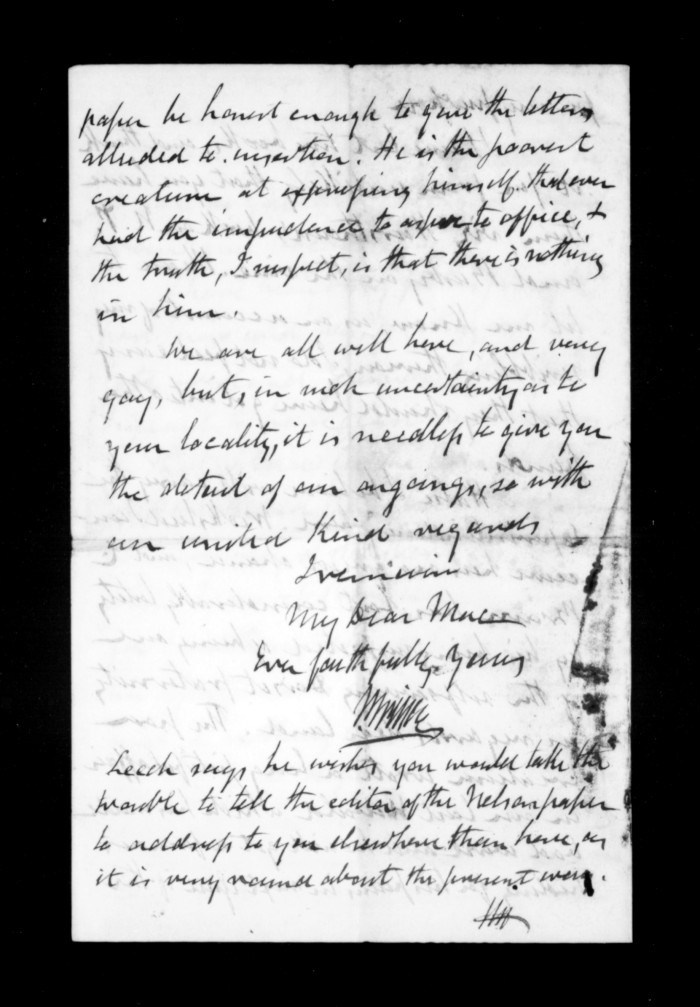 paper be honest enough to give the letters
alluded to insertion. He is the poorest
creature at expressing himself, that ever
had the impudence to aspire to office, &
the truth, I suspect, is that there is nothing
in him.
We are all well here, and very
gay, but, in such uncertainty as to
your locality, it is needless to give you
the detail of our ongoings, so with
our united kind regards
I remain
My Dear Mac
Ever faithfully Yours
Leech says he wishes you would take the
trouble to tell the editor of the Nelson paper
to address to you elsewhere than here, as
it is very round about the present way.